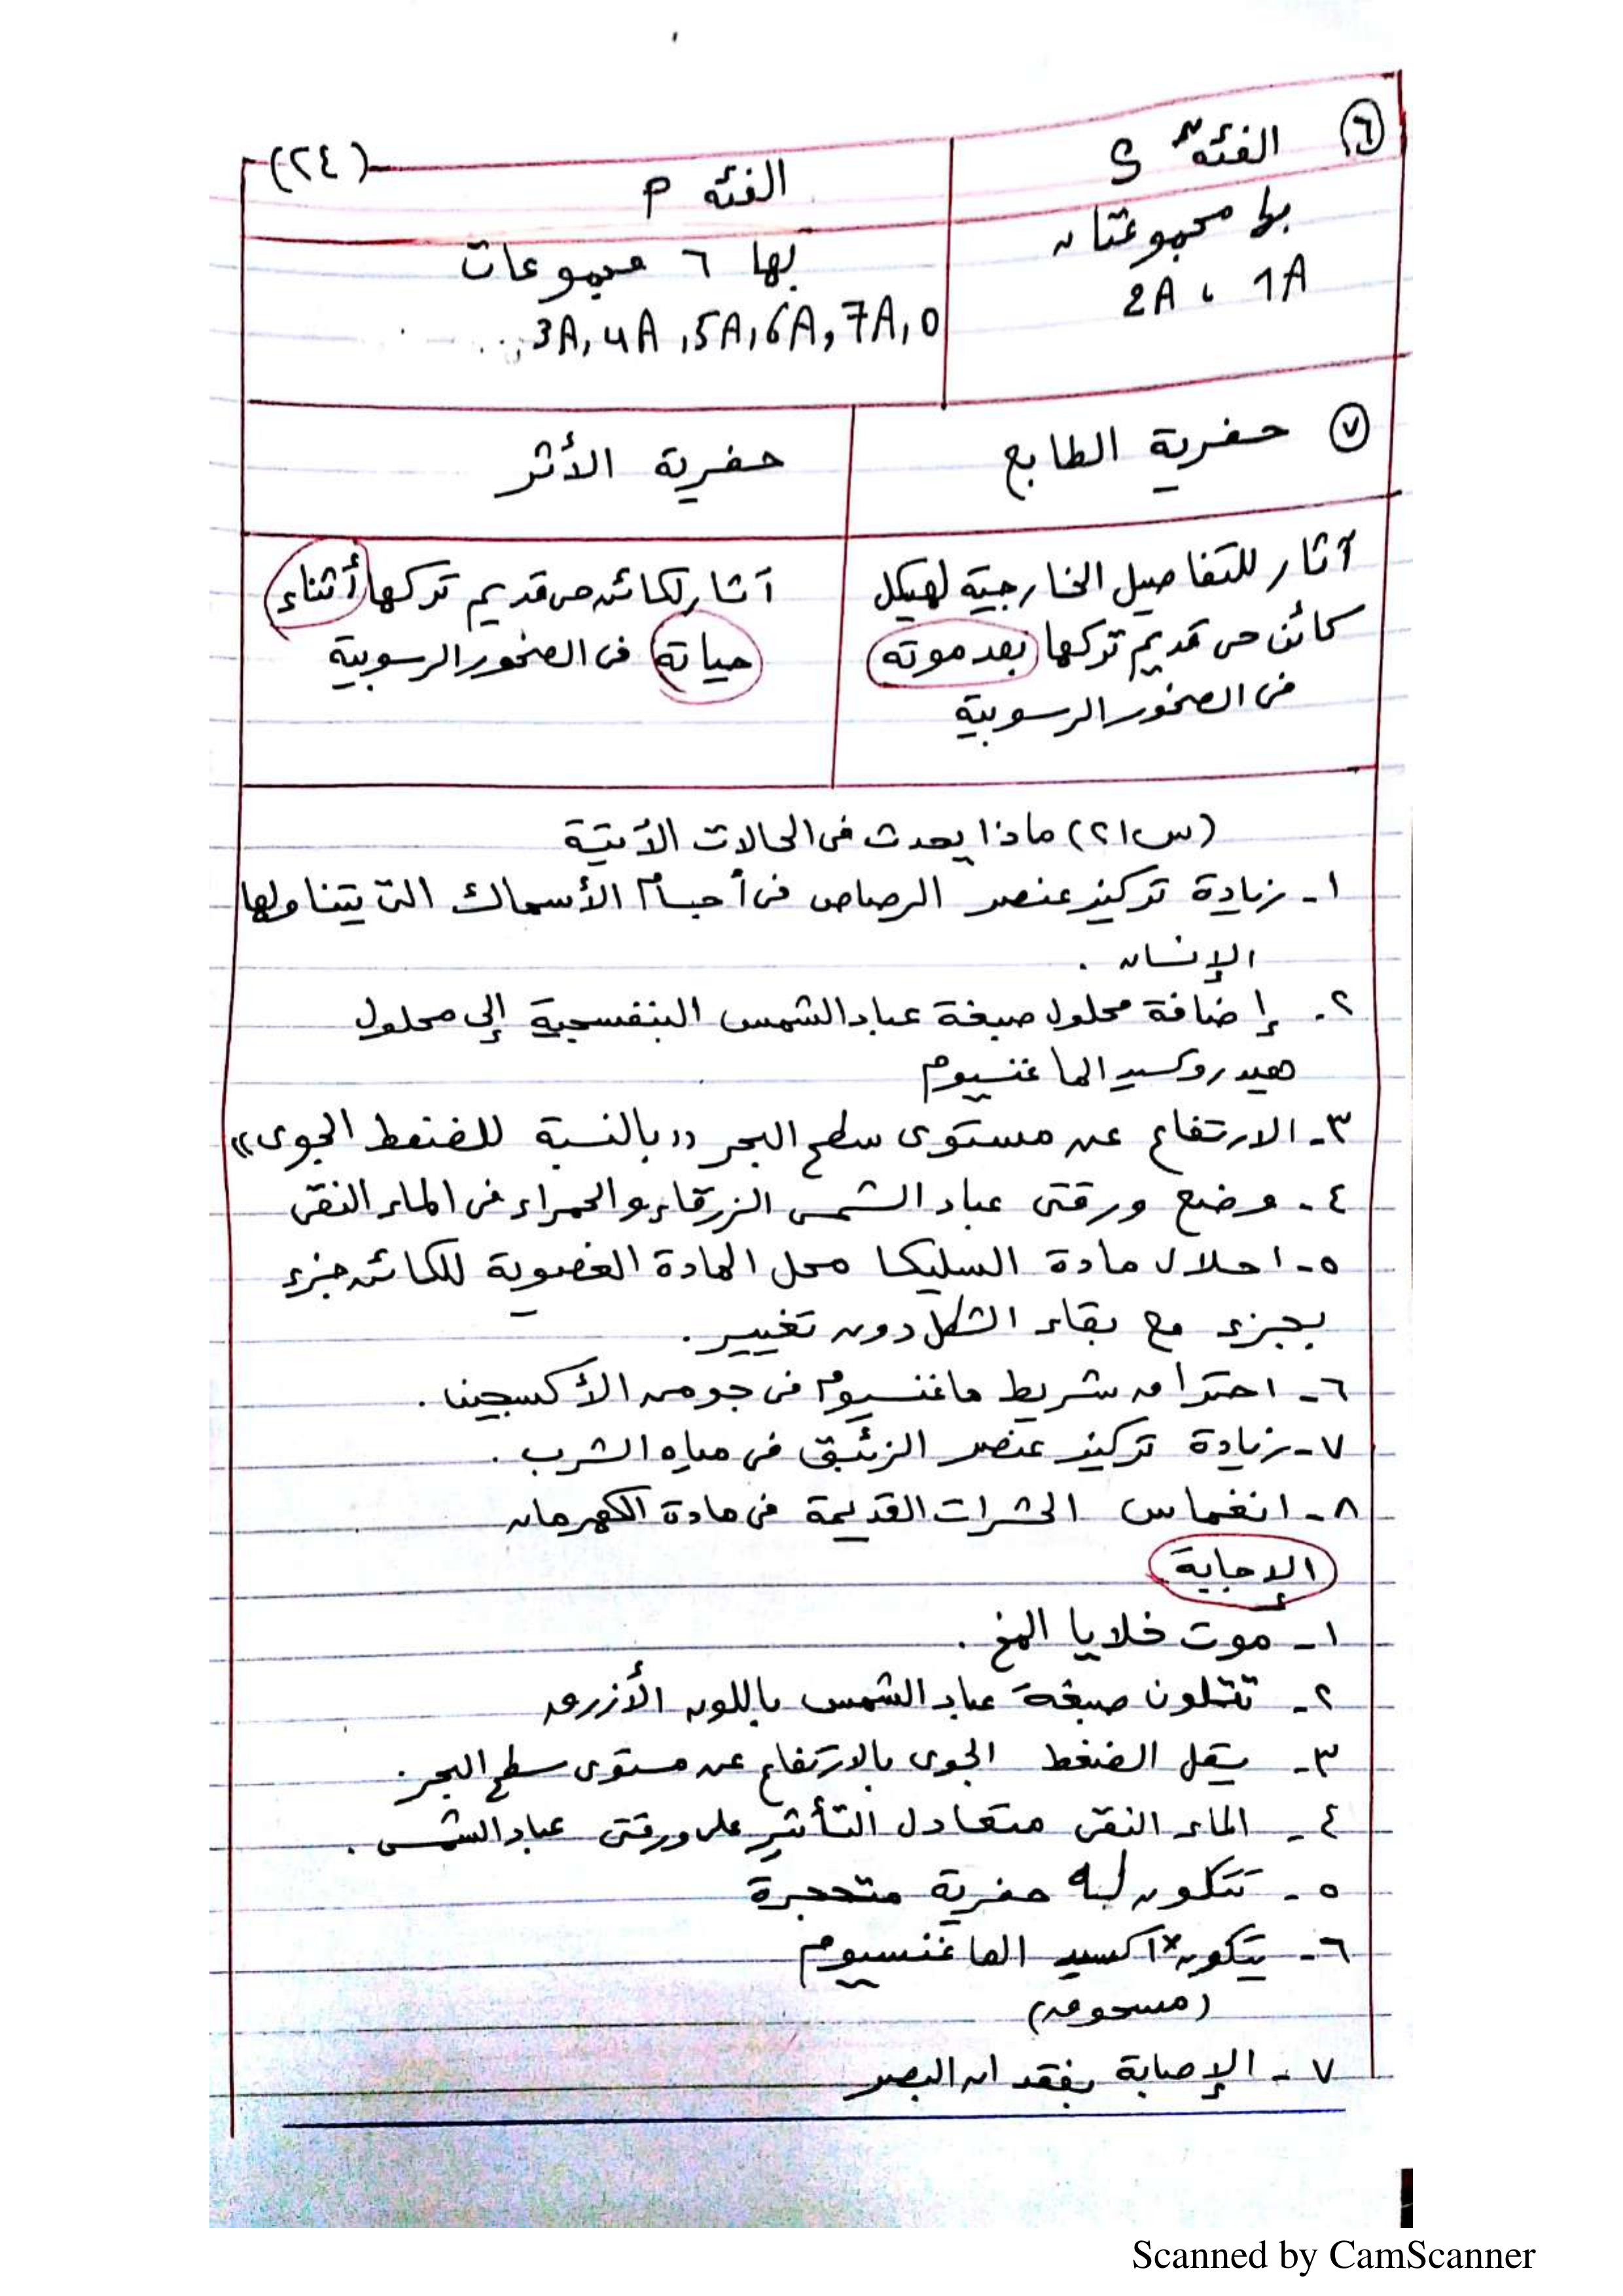 (٢٤)
٦ الفئة S
الفئه P
بها مجموعتان
1A ، 2A
بها ٦ مجموعات
3A, 4A, 5A, 6A, 7A, 0
٧ حفرية الطابع
حفرية الأثر
آثار للتفاصيل الخارجية لهيكل
كائن حى قديم تركها بعد موته
فى الصخور الرسوبية
آثار لكائن حى قديم تركها أثناء
حياته فى الصخور الرسوبية
(س٢١) ماذا يحدث فى الحالات الآتية
١- زيادة تركيز عنصر الرصاص فى أجسام الأسماك التى يتناولها
الإنسان .
٢- إضافة محلول صبغة عباد الشمس البنفسجية إلى محلول
هيدروكسيد الماغنسيوم
٣- الارتفاع عن مستوى سطح البحر ((بالنسبة للضغط الجوى))
٤- وضع ورقتى عباد الشمس الزرقاء والحمراء فى الماء النقى
٥- احلال مادة السليكا محل المادة العضوية للكائن جزء
بجزء مع بقاء الشكل دون تغيير .
٦- احتراق شريط ماغنسيوم فى جو من الأكسجين .
٧- زيادة تركيز عنصر الزئبق فى مياه الشرب .
٨- انغماس الحشرات القديمة فى مادة الكهرمان
الإجابة
١- موت خلايا المخ .
٢- تتلون صبغة عباد الشمس باللون الأزرق
٣- يقل الضغط الجوى بالارتفاع عن مستوى سطح البحر .
٤- الماء النقى متعادل التأثير على ورقتى عباد الشمس .
٥- تتكون له حفرية متحجرة
٦- يتكون أكسيد الماغنسيوم
(مسحوق)
٧- الإصابة بفقدان البصر
Scanned by CamScanner